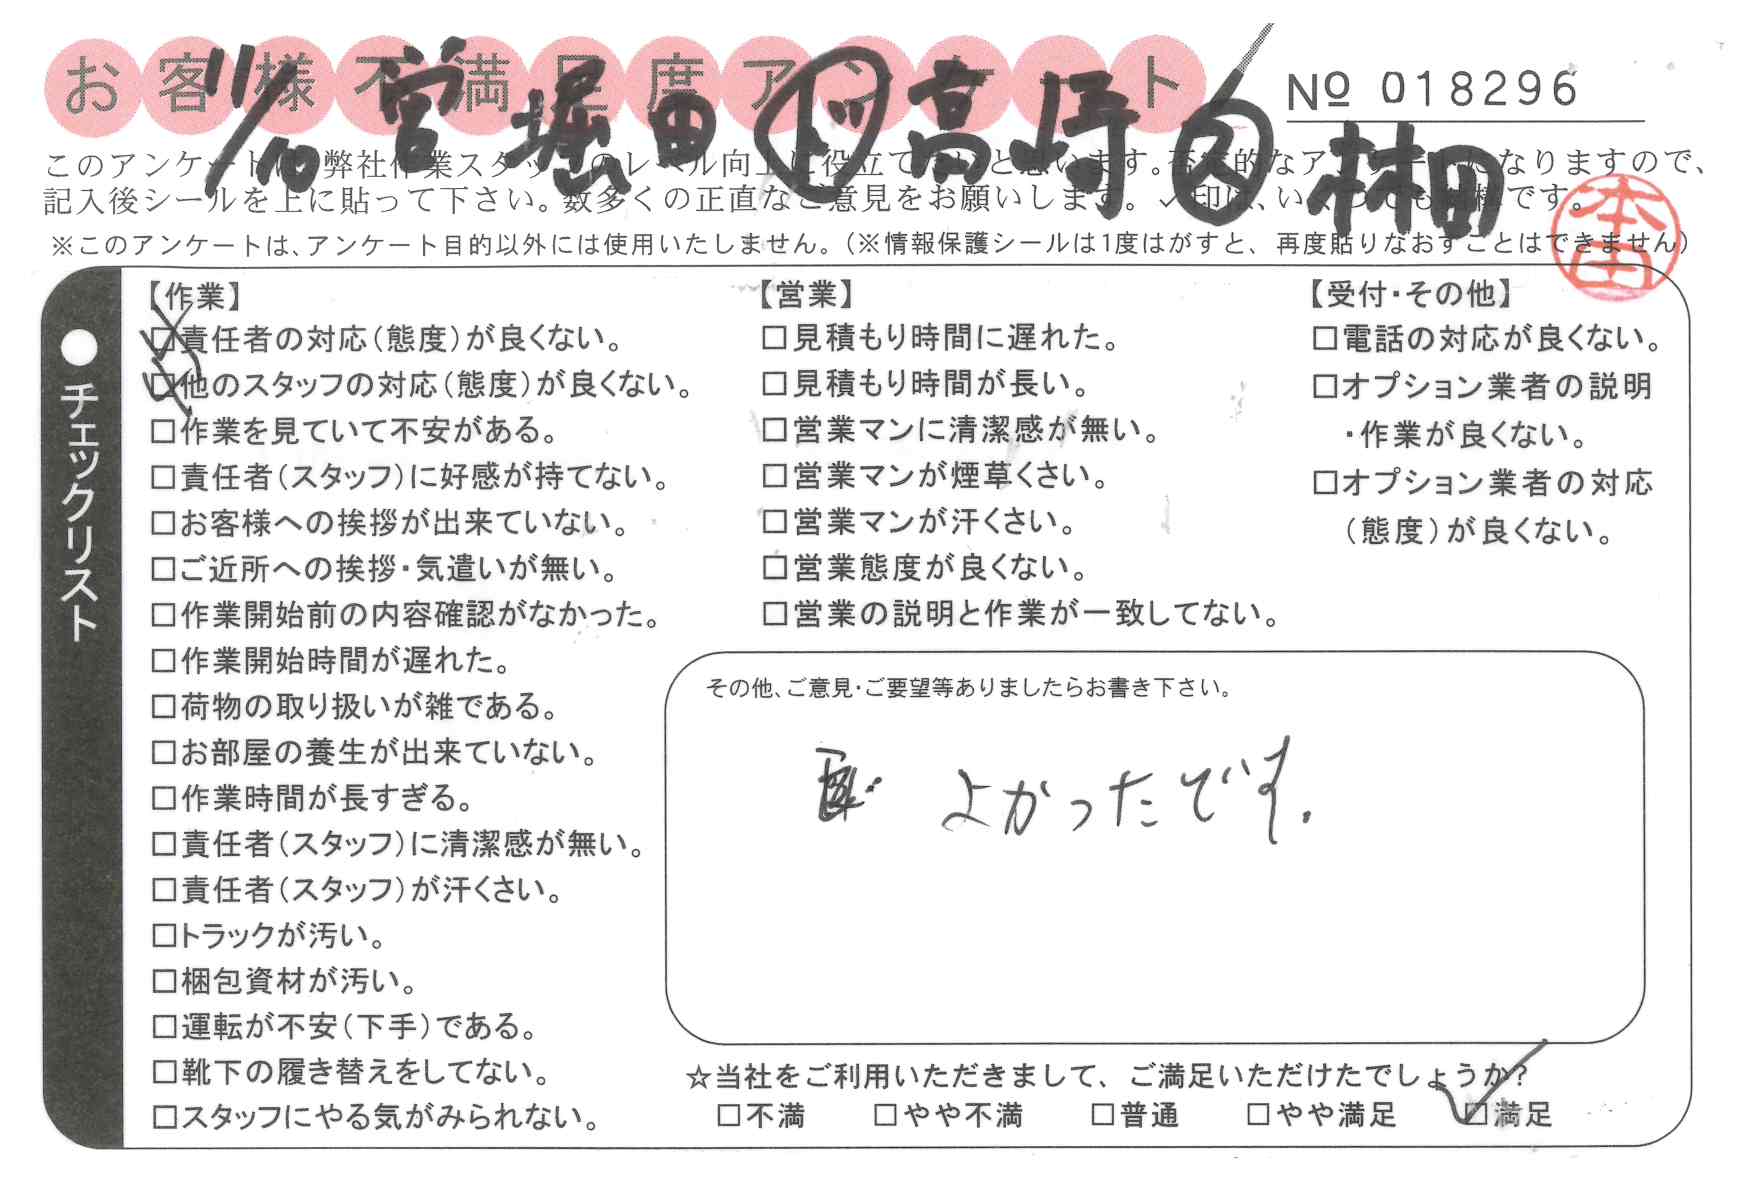 お客様不満足度アンケート
№ 018296
11/10 宮 堀田 高崎 林田
このアンケートは、弊社作業スタッフのレベル向上に役立てたいと思います。否定的なアンケートになりますので、
記入後シールを上に貼って下さい。数多くの正直なご意見をお願いします。✓印は、いくつでも結構です。
※このアンケートは、アンケート目的以外には使用いたしません。(※情報保護シールは1度はがすと、再度貼りなおすことはできません)
本田
●チェックリスト
【作業】
□責任者の対応(態度)が良くない。
□他のスタッフの対応(態度)が良くない。
□作業を見ていて不安がある。
□責任者(スタッフ)に好感が持てない。
□お客様への挨拶が出来ていない。
□ご近所への挨拶・気遣いが無い。
□作業開始前の内容確認がなかった。
□作業開始時間が遅れた。
□荷物の取り扱いが雑である。
□お部屋の養生が出来ていない。
□作業時間が長すぎる。
□責任者(スタッフ)に清潔感が無い。
□責任者(スタッフ)が汗くさい。
□トラックが汚い。
□梱包資材が汚い。
□運転が不安(下手)である。
□靴下の履き替えをしてない。
□スタッフにやる気がみられない。
【営業】
□見積もり時間に遅れた。
□見積もり時間が長い。
□営業マンに清潔感が無い。
□営業マンが煙草くさい。
□営業マンが汗くさい。
□営業態度が良くない。
□営業の説明と作業が一致してない。
【受付・その他】
□電話の対応が良くない。
□オプション業者の説明
・作業が良くない。
□オプション業者の対応
(態度)が良くない。
その他、ご意見・ご要望等ありましたらお書き下さい。
よかったです.
☆当社をご利用いただきまして、ご満足いただけたでしょうか?
□不満 □やや不満 □普通 □やや満足 ☑満足